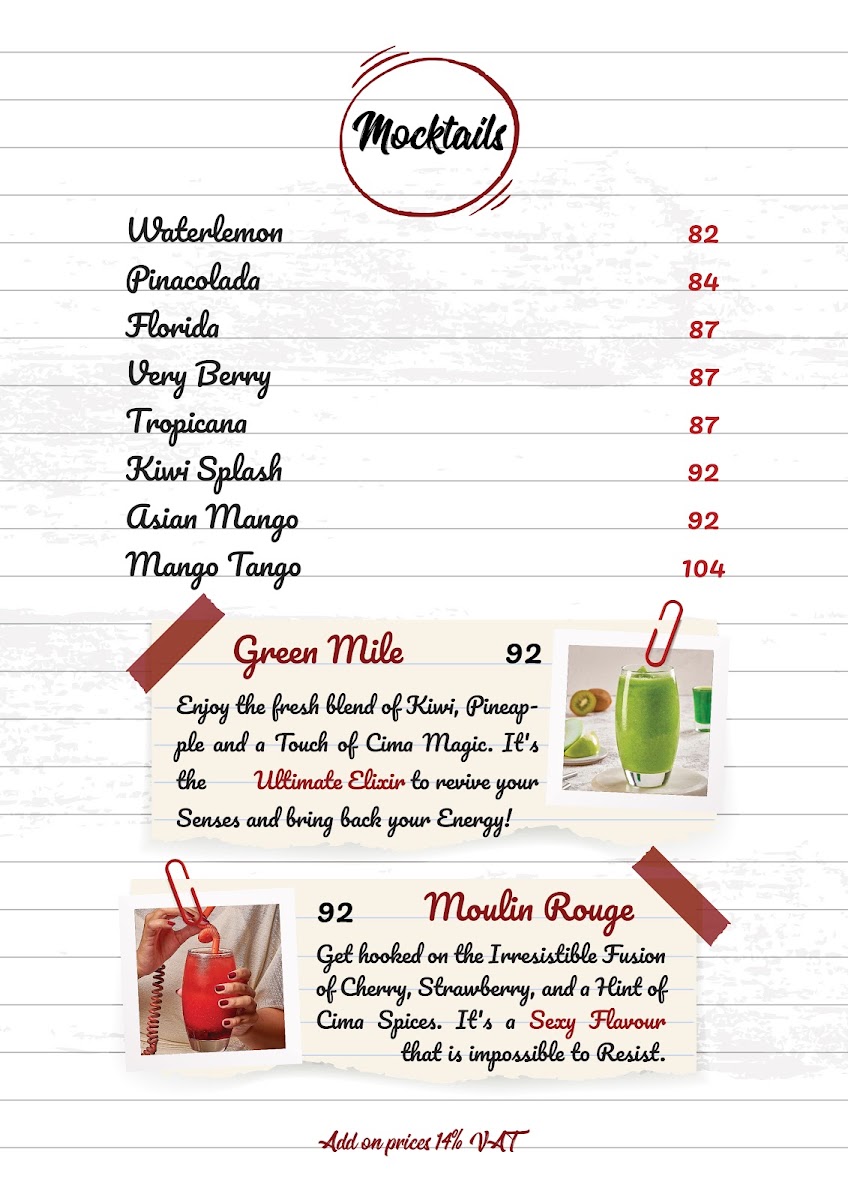 Mocktails
Waterlemon 82
Pinacolada 84
Florida 87
Very Berry 87
Tropicana 87
Kiwi Splash 92
Asian Mango 92
Mango Tango 104
Green Mile 92
Enjoy the fresh blend of Kiwi, Pineap-
ple and a Touch of Cima Magic. It's
the Ultimate Elixir to revive your
Senses and bring back your Energy!
92 Moulin Rouge
Get hooked on the Irresistible Fusion
of Cherry, Strawberry, and a Hint of
Cima Spices. It's a Sexy Flavour
that is impossible to Resist.
Add on prices 14% VAT